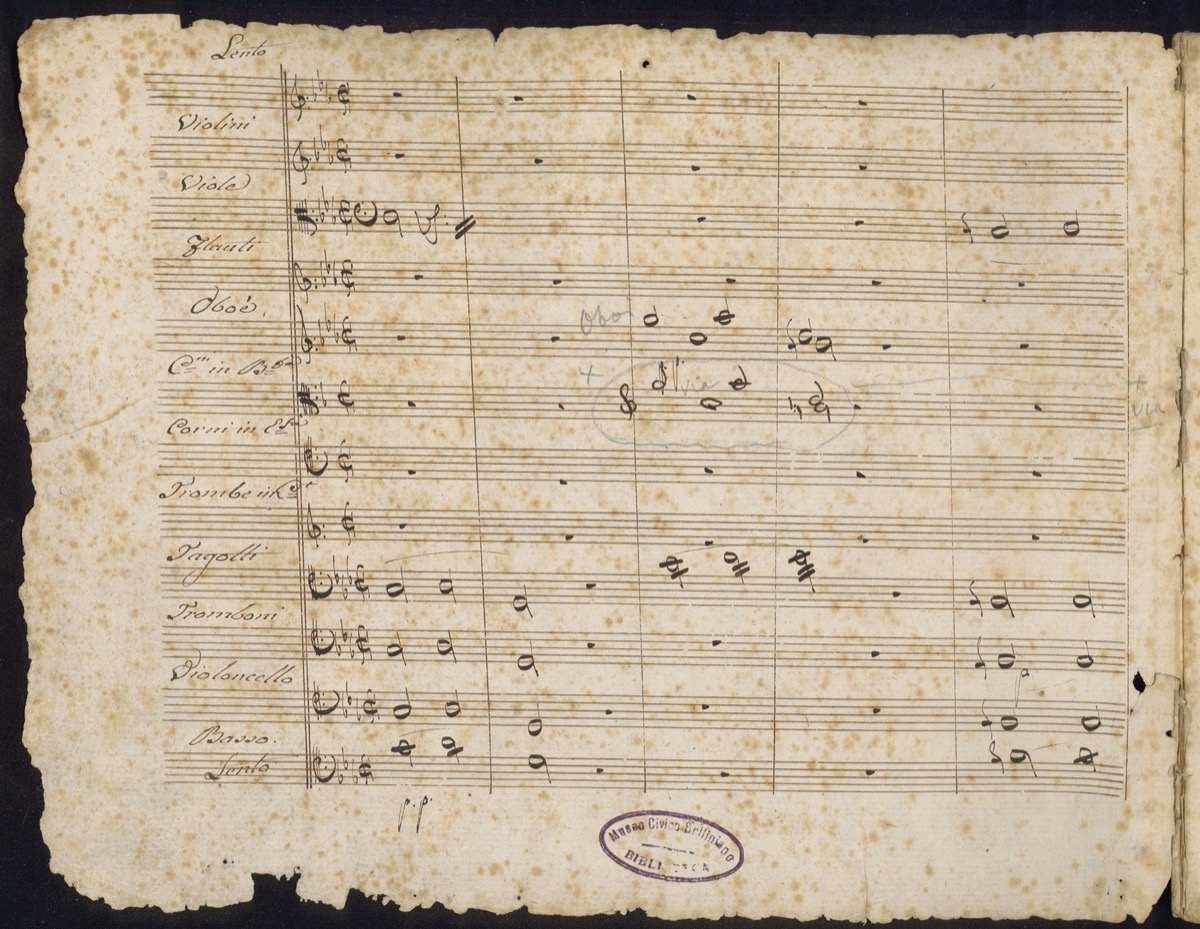 Lento
Violini
Viole
Flauti
Oboè
Obo
via
Corni in
via
Trombe in
Fagotti
Tromboni
Violoncello
p
Basso.
Lento
p.p.
Museo Civico Belliniano